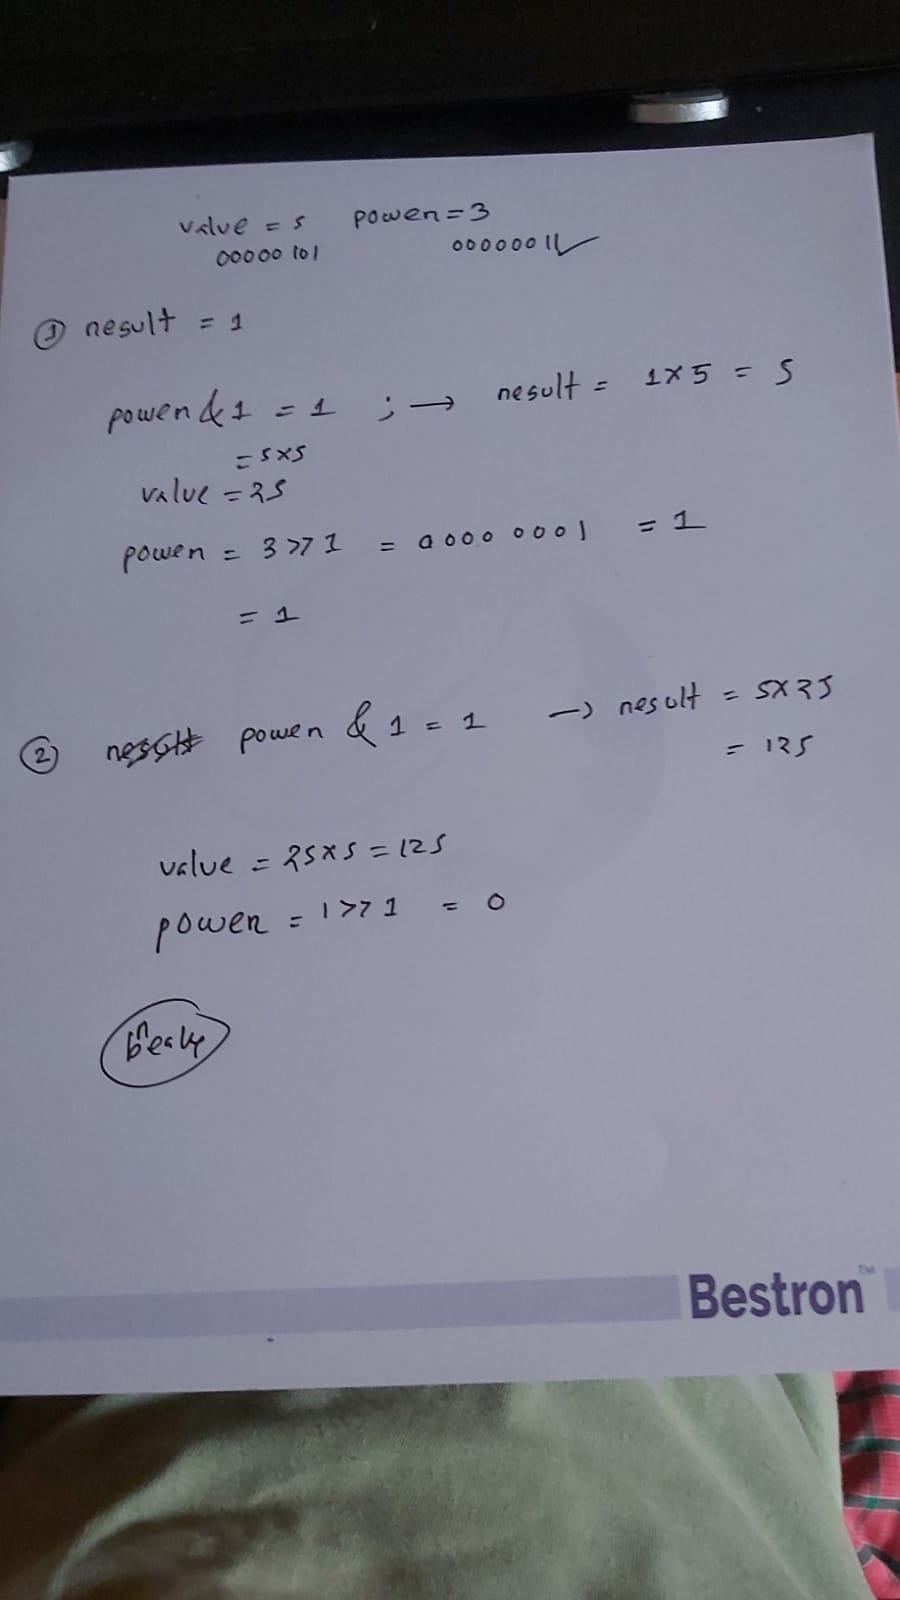 value = 5 power = 3
00000101 00000011
① result = 1
power & 1 = 1 ; → result = 1×5 = 5
= 5×5
value = 25
power = 3 >> 1 = 0000 0001 = 1
= 1
② result power & 1 = 1 → result = 5×25
= 125
value = 25×5 = 125
power = 1 >> 1 = 0
break
Bestron™